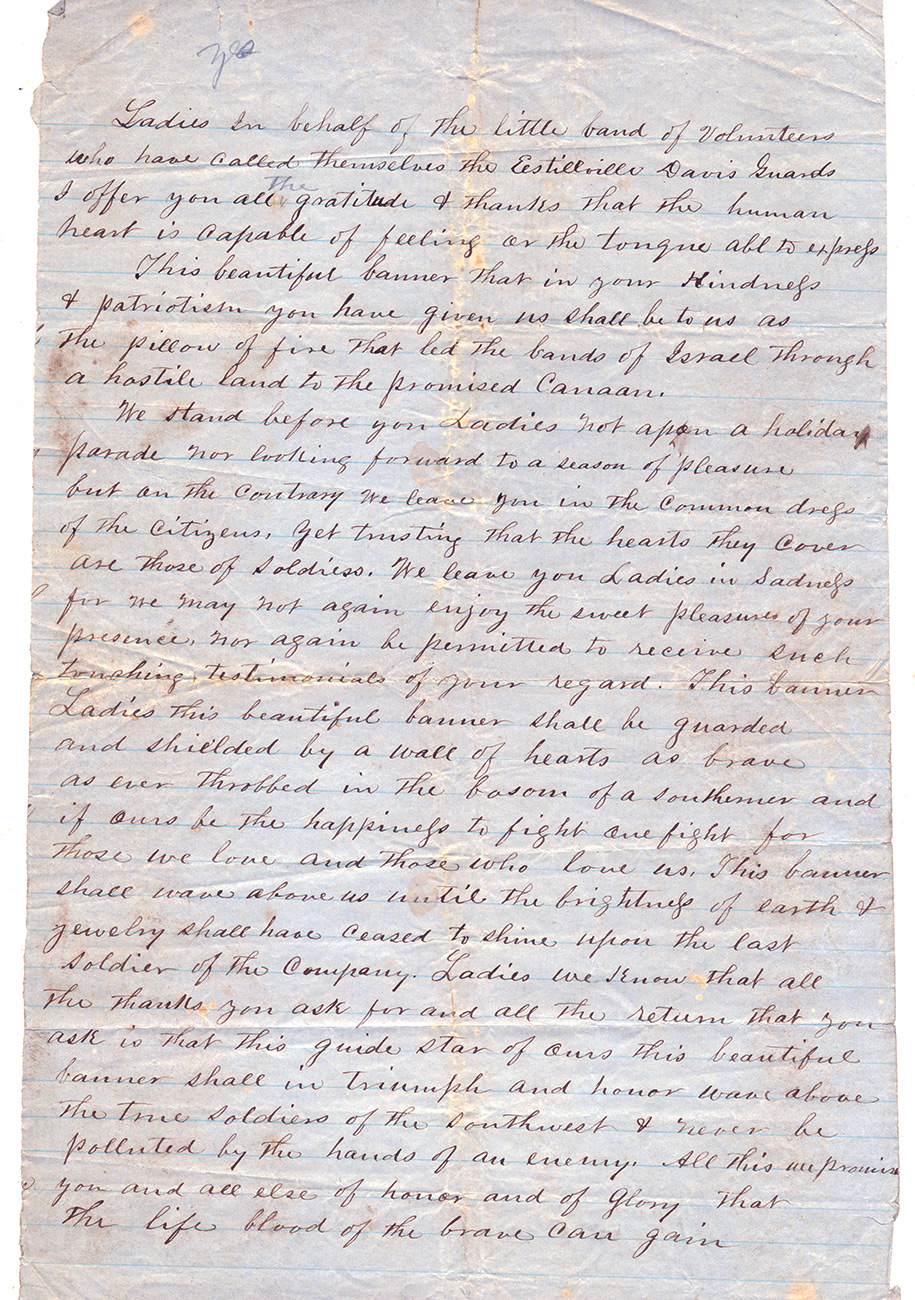 yes
Ladies In behalf of the little band of Volunteers
who have called themselves the Eestillville Davis Guards
the
I offer you all gratitude & thanks that the human
heart is capable of feeling or the tongue abl to express
This beautiful banner that in your Kindness
& patriotism you have given us shall be to us as
the pillow of fire that led the bands of Israel through
a hostile land to the promised Canaan.
We stand before you Ladies not apon a holiday
parade nor looking forward to a season of pleasure
but on the contrary we leave you in the common dress
of the citizens, yet trusting that the hearts they cover
are those of soldiess. We leave you Ladies in Sadness
for we may not again enjoy the sweet pleasures of your
presence, nor again be permitted to receive such
touching testimonials of your regard. This banner
Ladies this beautiful banner shall be guarded
and shielded by a wall of hearts as brave
as ever throbbed in the bosom of a southerner and
if ours be the happiness to fight one fight for
those we love and those who love us. This banner
shall wave above us until the brightness of earth &
jewelry shall have ceased to shine upon the last
soldier of the Company. Ladies we Know that all
the thanks you ask for and all the return that you
ask is that this guide star of ours this beautiful
banner shall in triumph and honor wave above
the true soldiers of the southwest & never be
polluted by the hands of an enemy. All this we promise
you and all else of honor and of Glory that
the life blood of the brave can gain